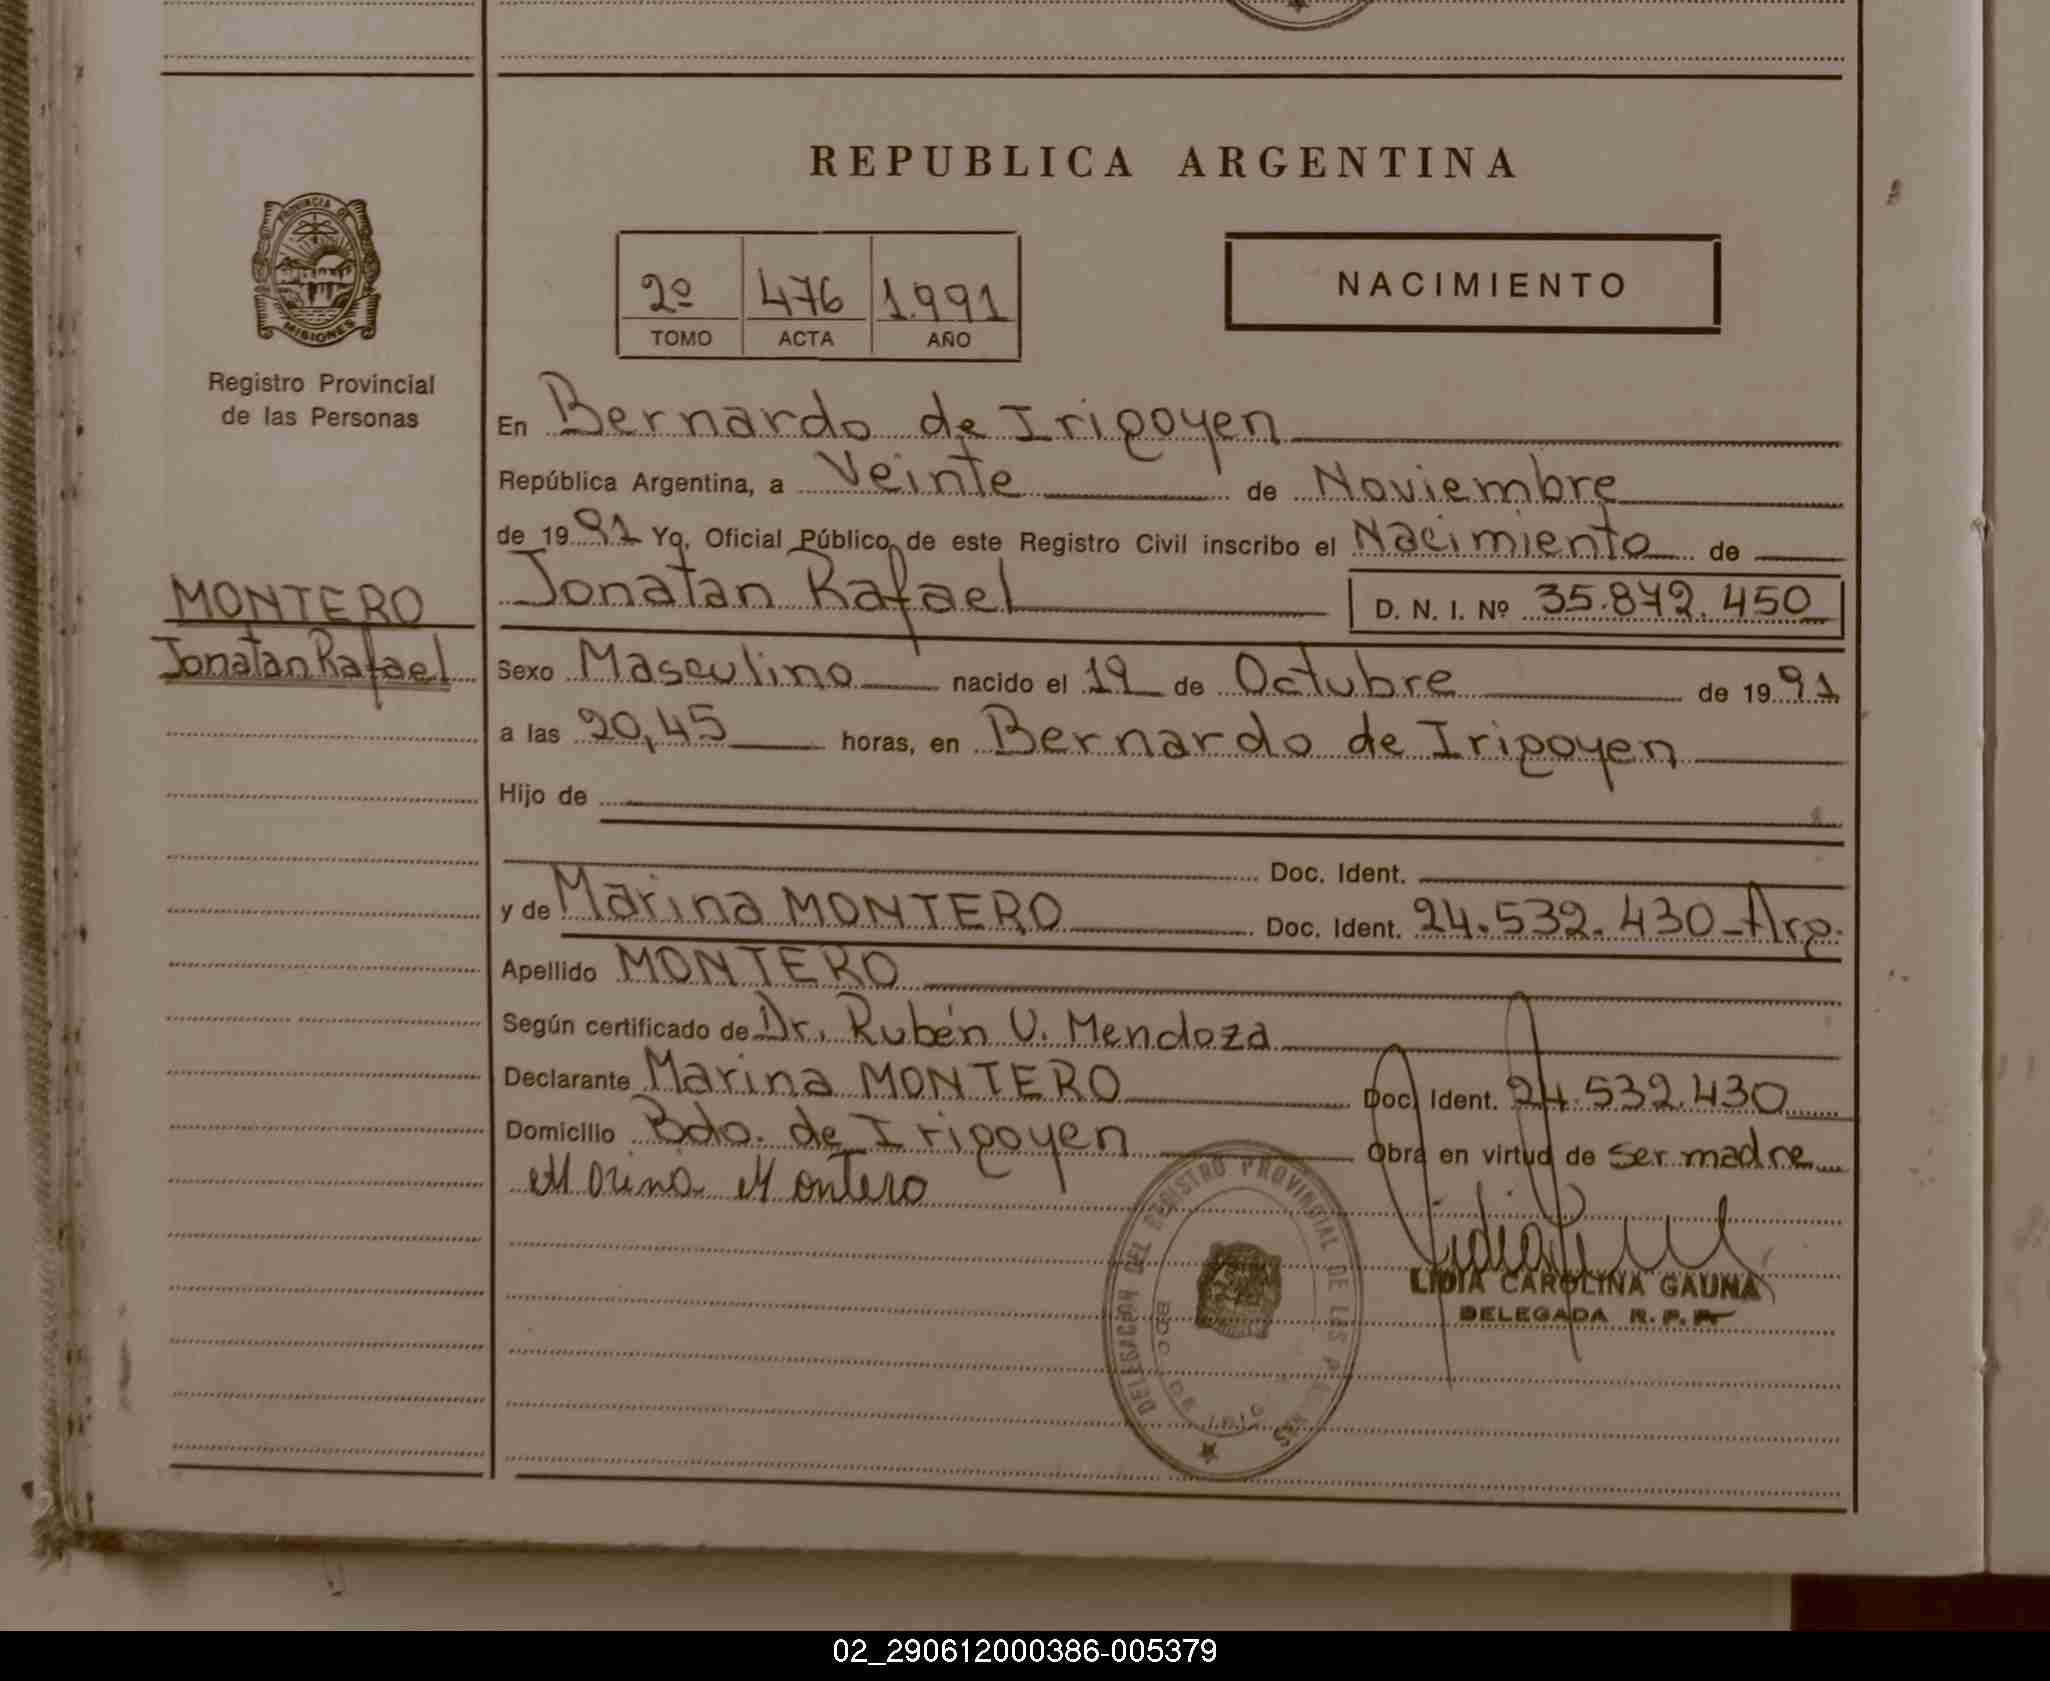 REPUBLICA ARGENTINA
PROVINCIA DE
MISIONES
Registro Provincial
de las Personas
2º 476 1.991
TOMO ACTA AÑO
NACIMIENTO
En Bernardo de Irigoyen
República Argentina, a Veinte de Noviembre
de 1991 Yo, Oficial Público de este Registro Civil inscribo el Nacimiento de
MONTERO
Jonatan Rafael
Jonatan Rafael D. N. I. Nº 35.872.450
Sexo Masculino nacido el 19 de Octubre de 1991
a las 20,45 horas, en Bernardo de Irigoyen
Hijo de
Doc. Ident.
y de Marina MONTERO Doc. Ident. 24.532.430-Arg.
Apellido MONTERO
Según certificado de Dr. Rubén V. Mendoza
Declarante Marina MONTERO Doc. Ident. 24.532.430
Domicilio Bdo. de Irigoyen Obra en virtud de ser madre
Marina Montero
DELEGACION DEL REGISTRO PROVINCIAL DE LAS
LIDIA CAROLINA GAUNA
DELEGADA R. P. P.
02_290612000386-005379